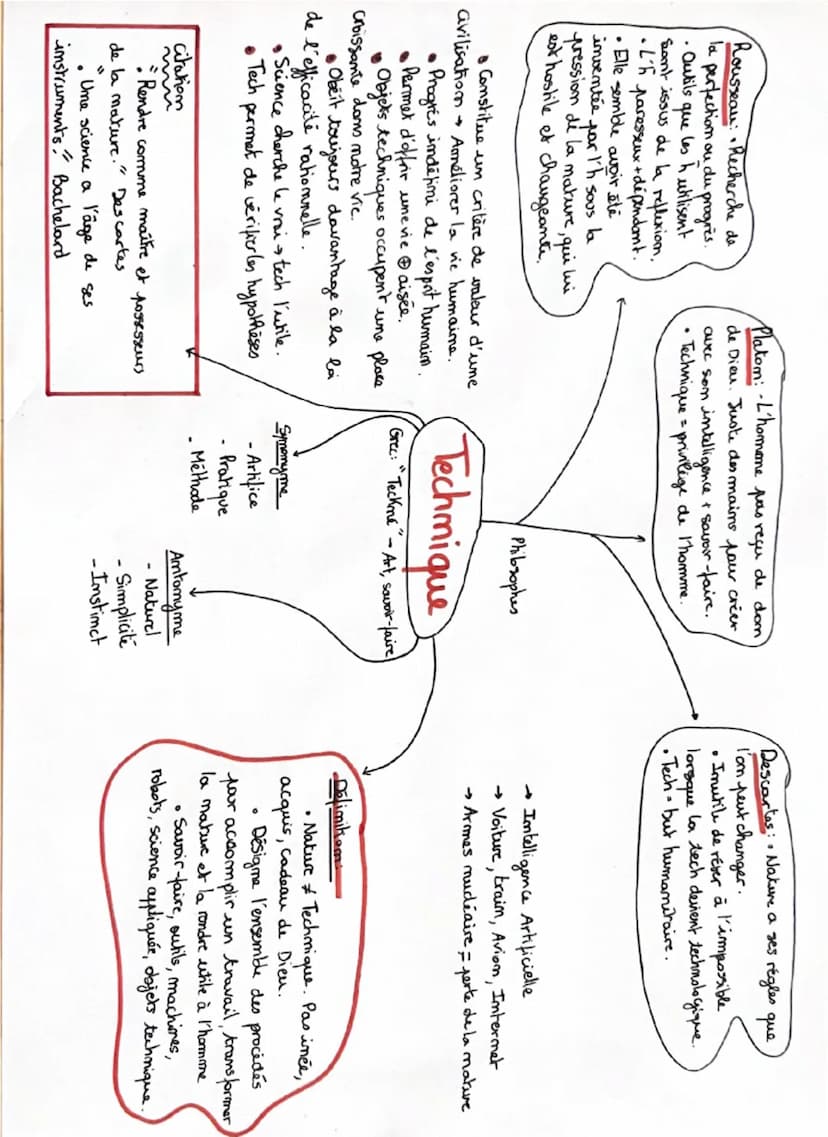 Technique
Grec: "Teckné" → Art, savoir-faire
Philosophes
Rousseau: • Recherche de
la perfection ou du progrès.
• Outils que les h utilisent
sont issus de la réflexion.
• L'h paresseux + dépendant.
• Elle semble avoir été
inventée par l'h sous la
pression de la nature, qui lui
est hostile et changeante.
Platon: • L'homme pas reçu de don
de Dieu. Juste des mains pour créer
avec son intelligence + savoir-faire.
• Technique = privilège de l'homme.
Descartes: • Nature a ses règles que
l'on peut changer.
• Inutile de rêver à l'impossible
lorsque la tech devient technologique.
• Tech = but humanitaire.
• Constitue un critère de valeur d'une
civilisation → Améliorer la vie humaine.
• Progrès indéfini de l'esprit humain.
• Permet d'offrir une vie ⊕ aisée.
• Objets techniques occupent une place
croissante dans notre vie.
• Obéit toujours davantage à la loi
de l'efficacité rationnelle.
• Science cherche le vrai → tech l'utile.
• Tech permet de vérifier les hypothèses
→ Intelligence Artificielle
→ Voiture, train, Avion, Internet
→ Armes nucléaire = perte de la nature
citation
"Rendre comme maître et possesseurs
de la nature." Descartes
• "Une science a l'âge de ses
instruments." Bachelard
Synonyme
- Artifice
- Pratique
- Méthode
Antonyme
- Naturel
- Simplicité
- Instinct
Définition:
• Nature ≠ Technique. Pas innée,
acquis, cadeau de Dieu.
• Désigne l'ensemble des procédés
pour accomplir un travail, transformer
la nature et la rendre utile à l'homme
• Savoir-faire, outils, machines,
robots, science appliquée, objets technique.